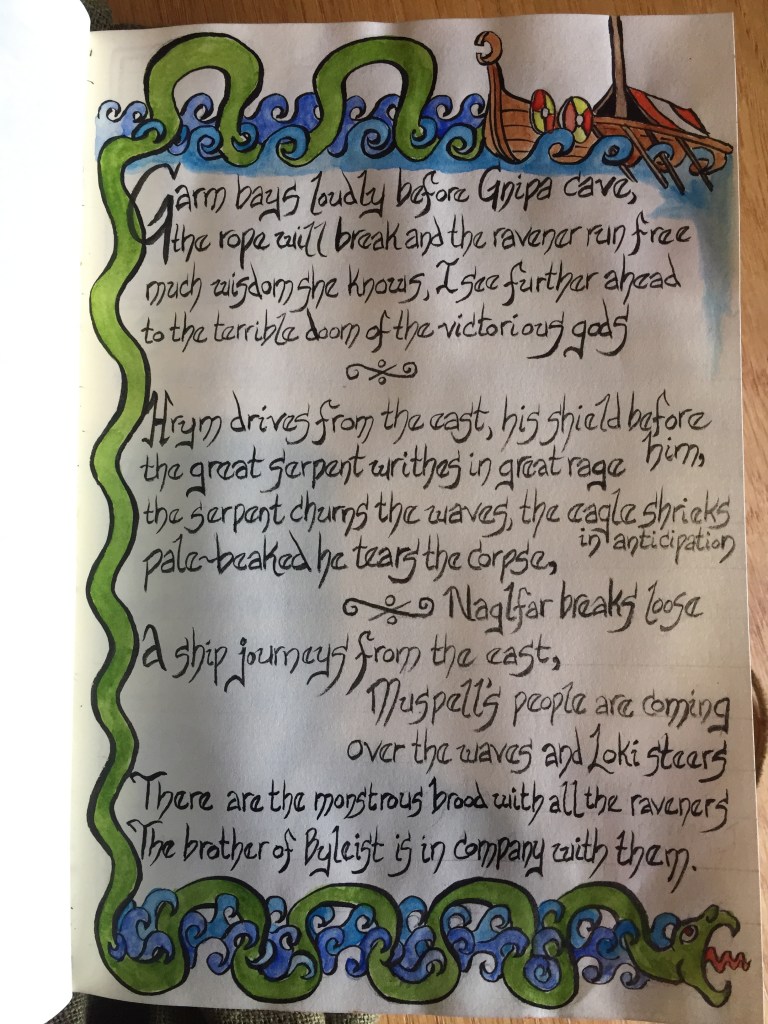 Garm bays loudly before Gnipa cave,
the rope will break and the ravener run free
much wisdom she knows, I see further ahead
to the terrible doom of the victorious gods
Hrym drives from the east, his shield before
him,
the great serpent writhes in great rage
the serpent churns the waves, the eagle shrieks
in anticipation
pale-beaked he tears the corpse,
Naglfar breaks loose
A ship journeys from the east,
Muspell's people are coming
over the waves and Loki steers
There are the monstrous brood with all the raveners
The brother of Byleist is in company with them.